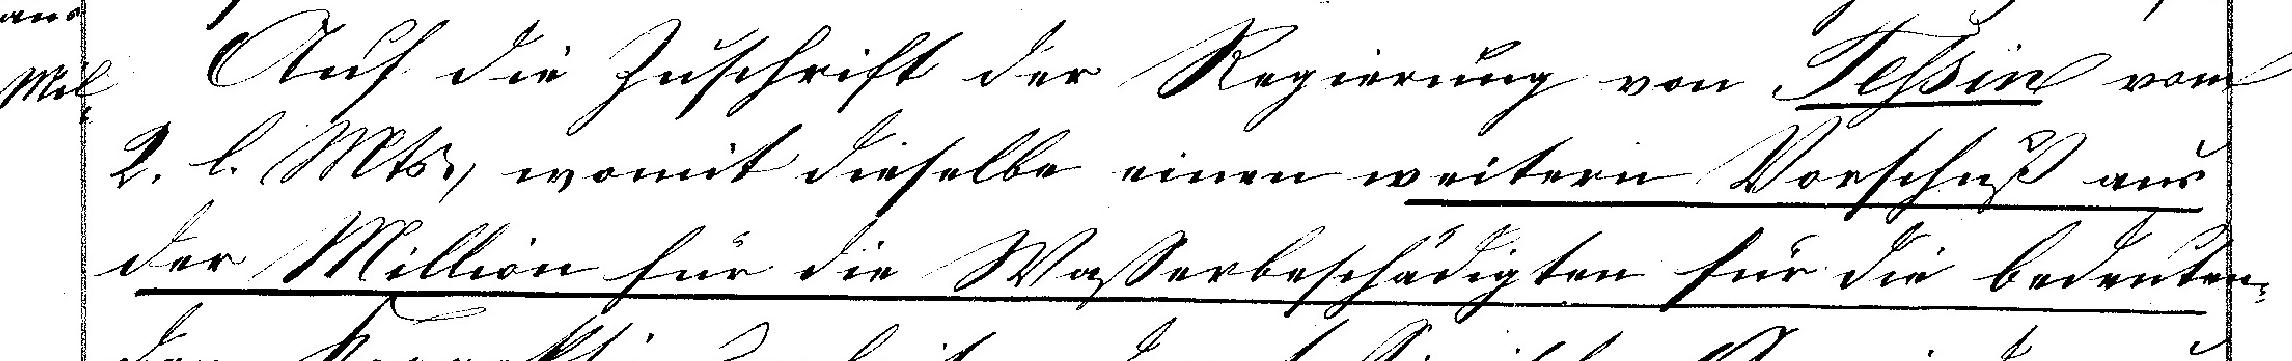 aus
Mil-
Auf die Zuschrift der Regierung von Tessin vom
2. l. Mts, womit dieselbe einen weitern Vorschuß aus
der Million für die Wasserbeschädigten für die bedeuten-
den